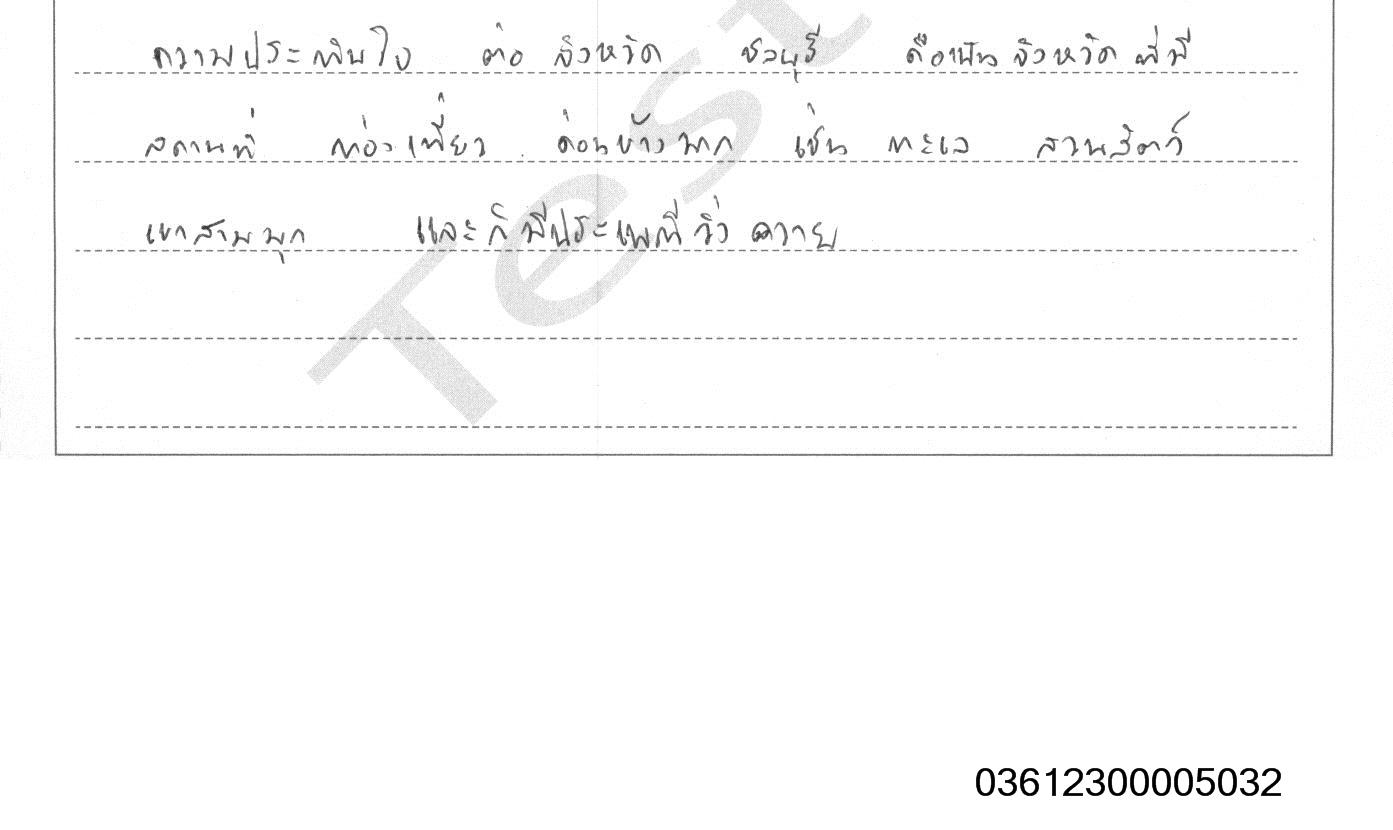 ความประทับใจ ต่อ จังหวัด ชลบุรี คือเป็น จังหวัด ที่มี
สถานที่ ท่องเที่ยว ค่อนข้าง มาก เช่น ทะเล สวนสัตว์
เขาสามมุก และก็ มีประเพณี วิ่ง ควาย
Test
03612300005032